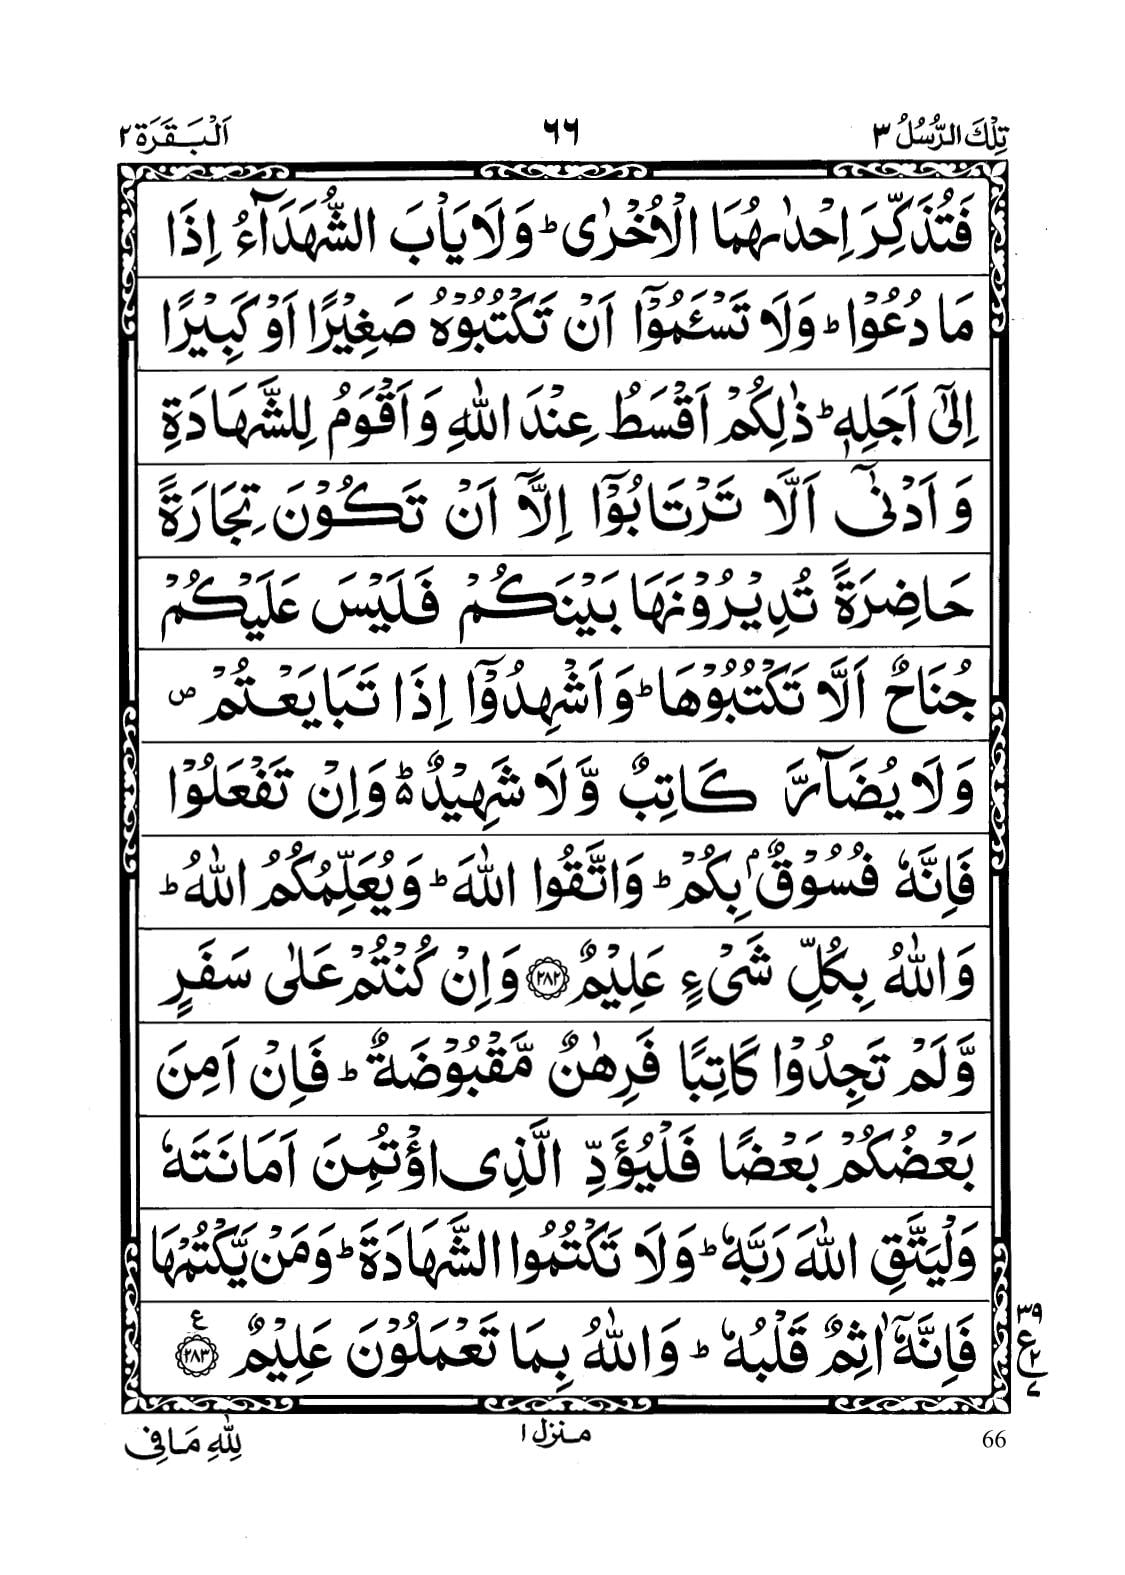 تِلْكَ الرُّسُلُ ٣
٦٦
اَلْبَقَرَة ٢
فَتُذَكِّرَ اِحْدٰىهُمَا الْاُخْرٰى ؕ وَلَا يَاْبَ الشُّهَدَآءُ اِذَا
مَا دُعُوْا ؕ وَلَا تَسْـَٔمُوْۤا اَنْ تَكْتُبُوْهُ صَغِيْرًا اَوْ كَبِيْرًا
اِلٰۤى اَجَلِهٖ ؕ ذٰلِكُمْ اَقْسَطُ عِنْدَ اللّٰهِ وَاَقْوَمُ لِلشَّهَادَةِ
وَاَدْنٰۤى اَلَّا تَرْتَابُوْۤا اِلَّاۤ اَنْ تَكُوْنَ تِجَارَةً
حَاضِرَةً تُدِيْرُوْنَهَا بَيْنَكُمْ فَلَيْسَ عَلَيْكُمْ
جُنَاحٌ اَلَّا تَكْتُبُوْهَا ؕ وَاَشْهِدُوْۤا اِذَا تَبَايَعْتُمْ ۪
وَلَا يُضَآرَّ كَاتِبٌ وَّلَا شَهِيْدٌ ۬ؕ وَاِنْ تَفْعَلُوْا
فَاِنَّهٗ فُسُوْقٌۢ بِكُمْ ؕ وَاتَّقُوا اللّٰهَ ؕ وَيُعَلِّمُكُمُ اللّٰهُ ؕ
وَاللّٰهُ بِكُلِّ شَىْءٍ عَلِيْمٌ ﴿٢٨٢﴾ وَاِنْ كُنْتُمْ عَلٰى سَفَرٍ
وَّلَمْ تَجِدُوْا كَاتِبًا فَرِهٰنٌ مَّقْبُوْضَةٌ ؕ فَاِنْ اَمِنَ
بَعْضُكُمْ بَعْضًا فَلْيُؤَدِّ الَّذِى اؤْتُمِنَ اَمَانَتَهٗ
وَلْيَتَّقِ اللّٰهَ رَبَّهٗ ؕ وَلَا تَكْتُمُوا الشَّهَادَةَ ؕ وَمَنْ يَّكْتُمْهَا
فَاِنَّهٗۤ اٰثِمٌ قَلْبُهٗ ؕ وَاللّٰهُ بِمَا تَعْمَلُوْنَ عَلِيْمٌ ﴿٢٨٣﴾ ع
٣٩
ع ٢
٧
66
منزل ١
لِلّٰهِ مَا فِى